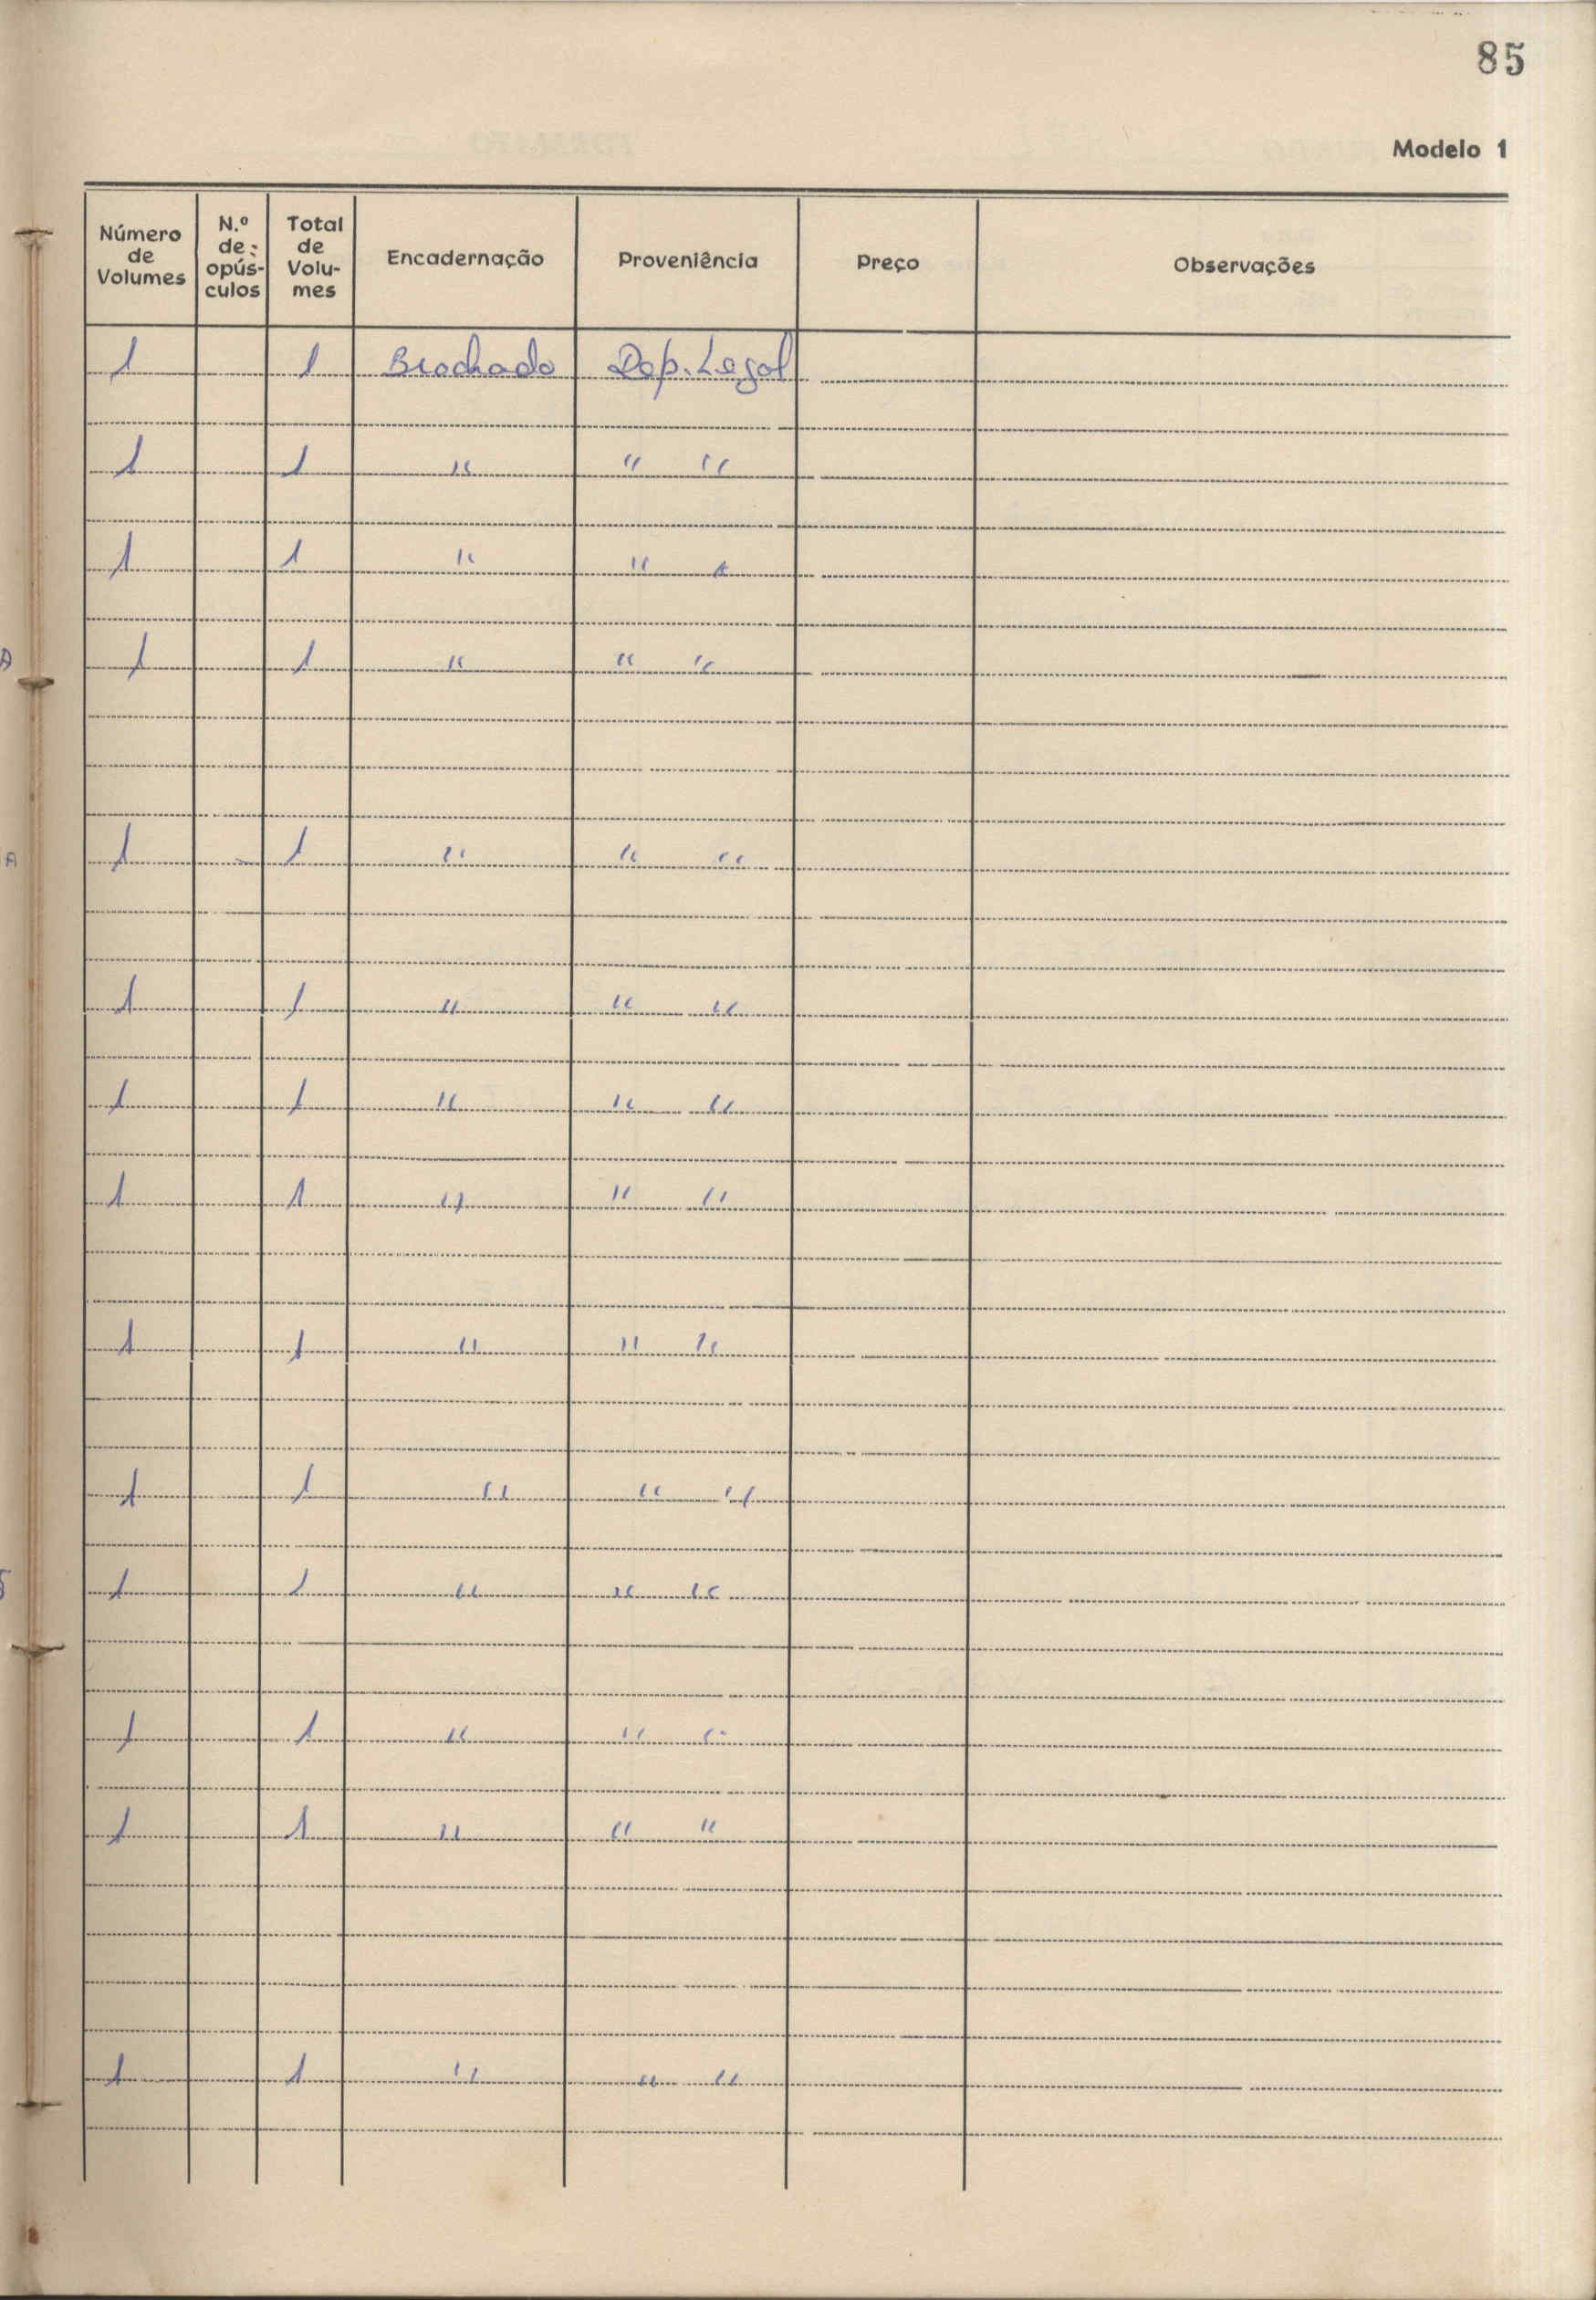 85
Modelo 1
Número de Volumes | N.º de opús-culos | Total de Volu-mes | Encadernação | Proveniência | Preço | Observações
1 | | 1 | Brochado | Dep. Legal
1 | | 1 | " | " "
1 | | 1 | " | " "
1 | | 1 | " | " "
1 | | 1 | " | " "
1 | | 1 | " | " "
1 | | 1 | " | " "
1 | | 1 | " | " "
1 | | 1 | " | " "
1 | | 1 | " | " "
1 | | 1 | " | " "
1 | | 1 | " | " "
1 | | 1 | " | " "
1 | | 1 | " | " "